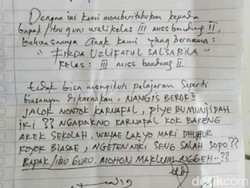 Dengan ini kami memberitahukan kepada
bapak/ibu guru walikelas III miss bandung II,
bahwasanya Anak kami yang bernama :
" FIRDA UZLIFATUL SALSABILA
kelas : III miss bandung II.
tidak bisa mengikuti pelajaran Seperti
biasanya dikarenakan : NANGIS BENGOR
JALOK NONTOK KARNAPAL, PIYE BUMUNI/PAH
IKI ?? NGAPAKNO KARNAPAL KOK BARENG
AREK SEKOLAH, WAYAE LAKYO MARI DHUHUR
KOYOK BIASAE, NGETEN NIKI SENG SALAH SOPO ??
BAPAK/IBU GURU MOHON MAKLUM NGGEH - ??
detikcom